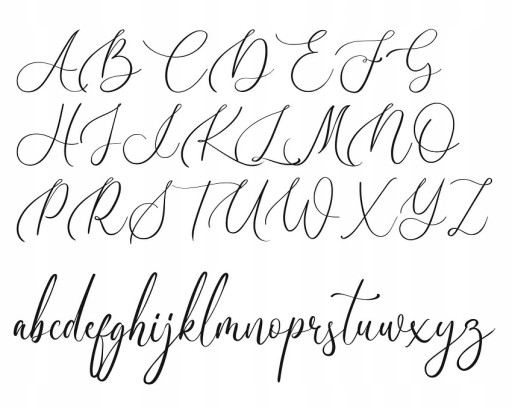 A B C D E F G
H I J K L M N O
P R S T U W X Y Z
abcdefghijklmnoprstuwxyz